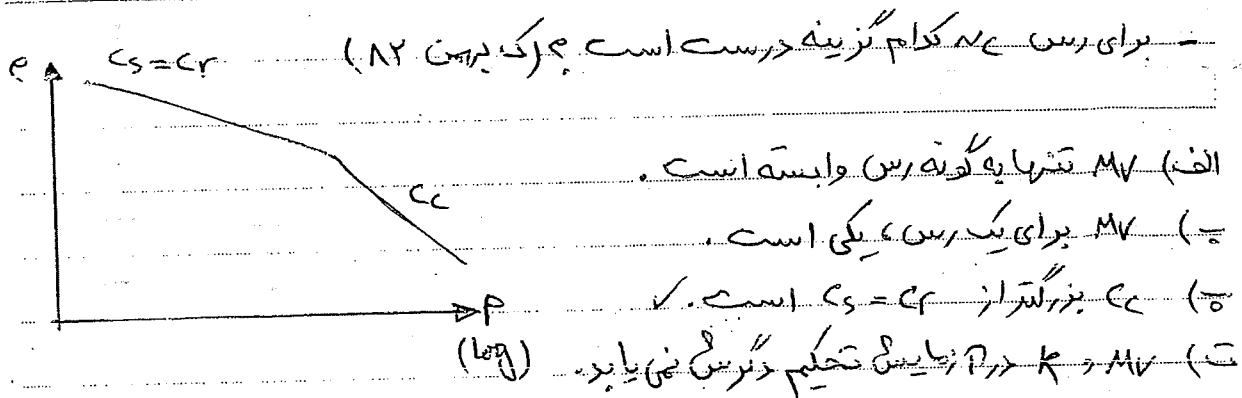 - برای رس NC کدام گزینه درست است ؟ (ک بهمن ۸۲)
e
Cs=Cr
الف) MV تنها به گونه رس وابسته است .
Cc
ب) MV برای یک رس ، یکی است .
پ) Cc بزرگتر از Cs=Cr است . ✓
P
(Log)
ت) MV و K در آزمایش تحکیم دگرش نمی یابد .